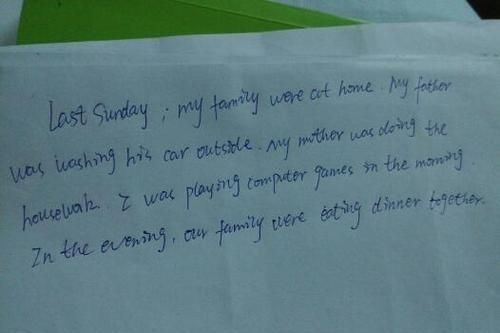 Last Sunday, my family were at home. My father
was washing his car outside. My mother was doing the
housewok. I was playing computer games in the morning.
In the evening, our family were eating dinner together.